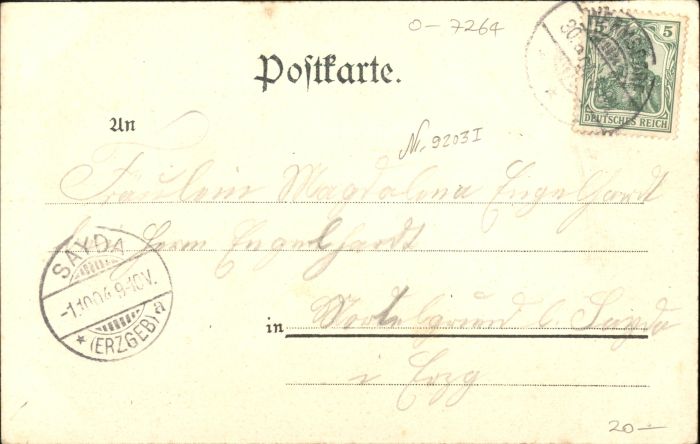 0-7264
5 5
DEUTSCHES REICH
Postkarte.
An
Nr. 9203 I
Fräulein Magdalena Engelhardt
Herrn Engelhardt
SAYDA
-1.10.04.9-10V.
* (ERZGEB) a
in
b. Sayda
i Erzg
20-